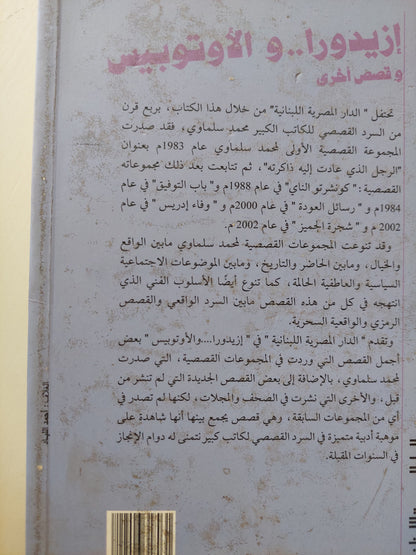 إزيدورا.. و الأوتوبيس
و قصص أخرى
تحتفل " الدار المصرية اللبنانية" من خلال هذا الكتاب، بربع قرن
من السرد القصصي للكاتب الكبير محمد سلماوي، فقد صدرت
المجموعة القصصية الأولى لمحمد سلماوي عام 1983م بعنوان
"الرجل الذي عادت إليه ذاكرته"، ثم تتابعت بعد ذلك مجموعاته
القصصية : " كونشرتو الناي" في عام 1988م و" باب التوفيق" في عام
1984م و " رسائل العودة " في عام 2000م و " وفاء إدريس " في عام
2002 م و " شجرة الجميز " في عام 2002 م.
وقد تنوعت المجموعات القصصية لمحمد سلماوي مابين الواقع
والخيال، ومابين الحاضر والتاريخ، ومابين الموضوعات الاجتماعية
السياسية والعاطفية الحالمة، كما تنوع أيضًا الأسلوب الفني الذي
انتهجه في كل من هذه القصص مابين السرد الواقعي والقصص
الرمزي والواقعية السحرية.
وتقدم " الدار المصرية اللبنانية " في " إزيدورا....والأوتوبيس " بعض
أجمل القصص التي وردت في المجموعات القصصية، التي صدرت
لمحمد سلماوي، بالإضافة إلى بعض القصص الجديدة التي لم تنشر من
قبل، والأخرى التي نشرت في الصحف والمجلات، لكنها لم تصدر في
أي من المجموعات السابقة، وهي قصص يجمع بينها أنها شاهدة على
موهبة أدبية متميزة في السرد القصصي لكاتب كبير نتمنى له دوام الإنجاز
في السنوات المقبلة.
الغلاف : أحمد اللباد